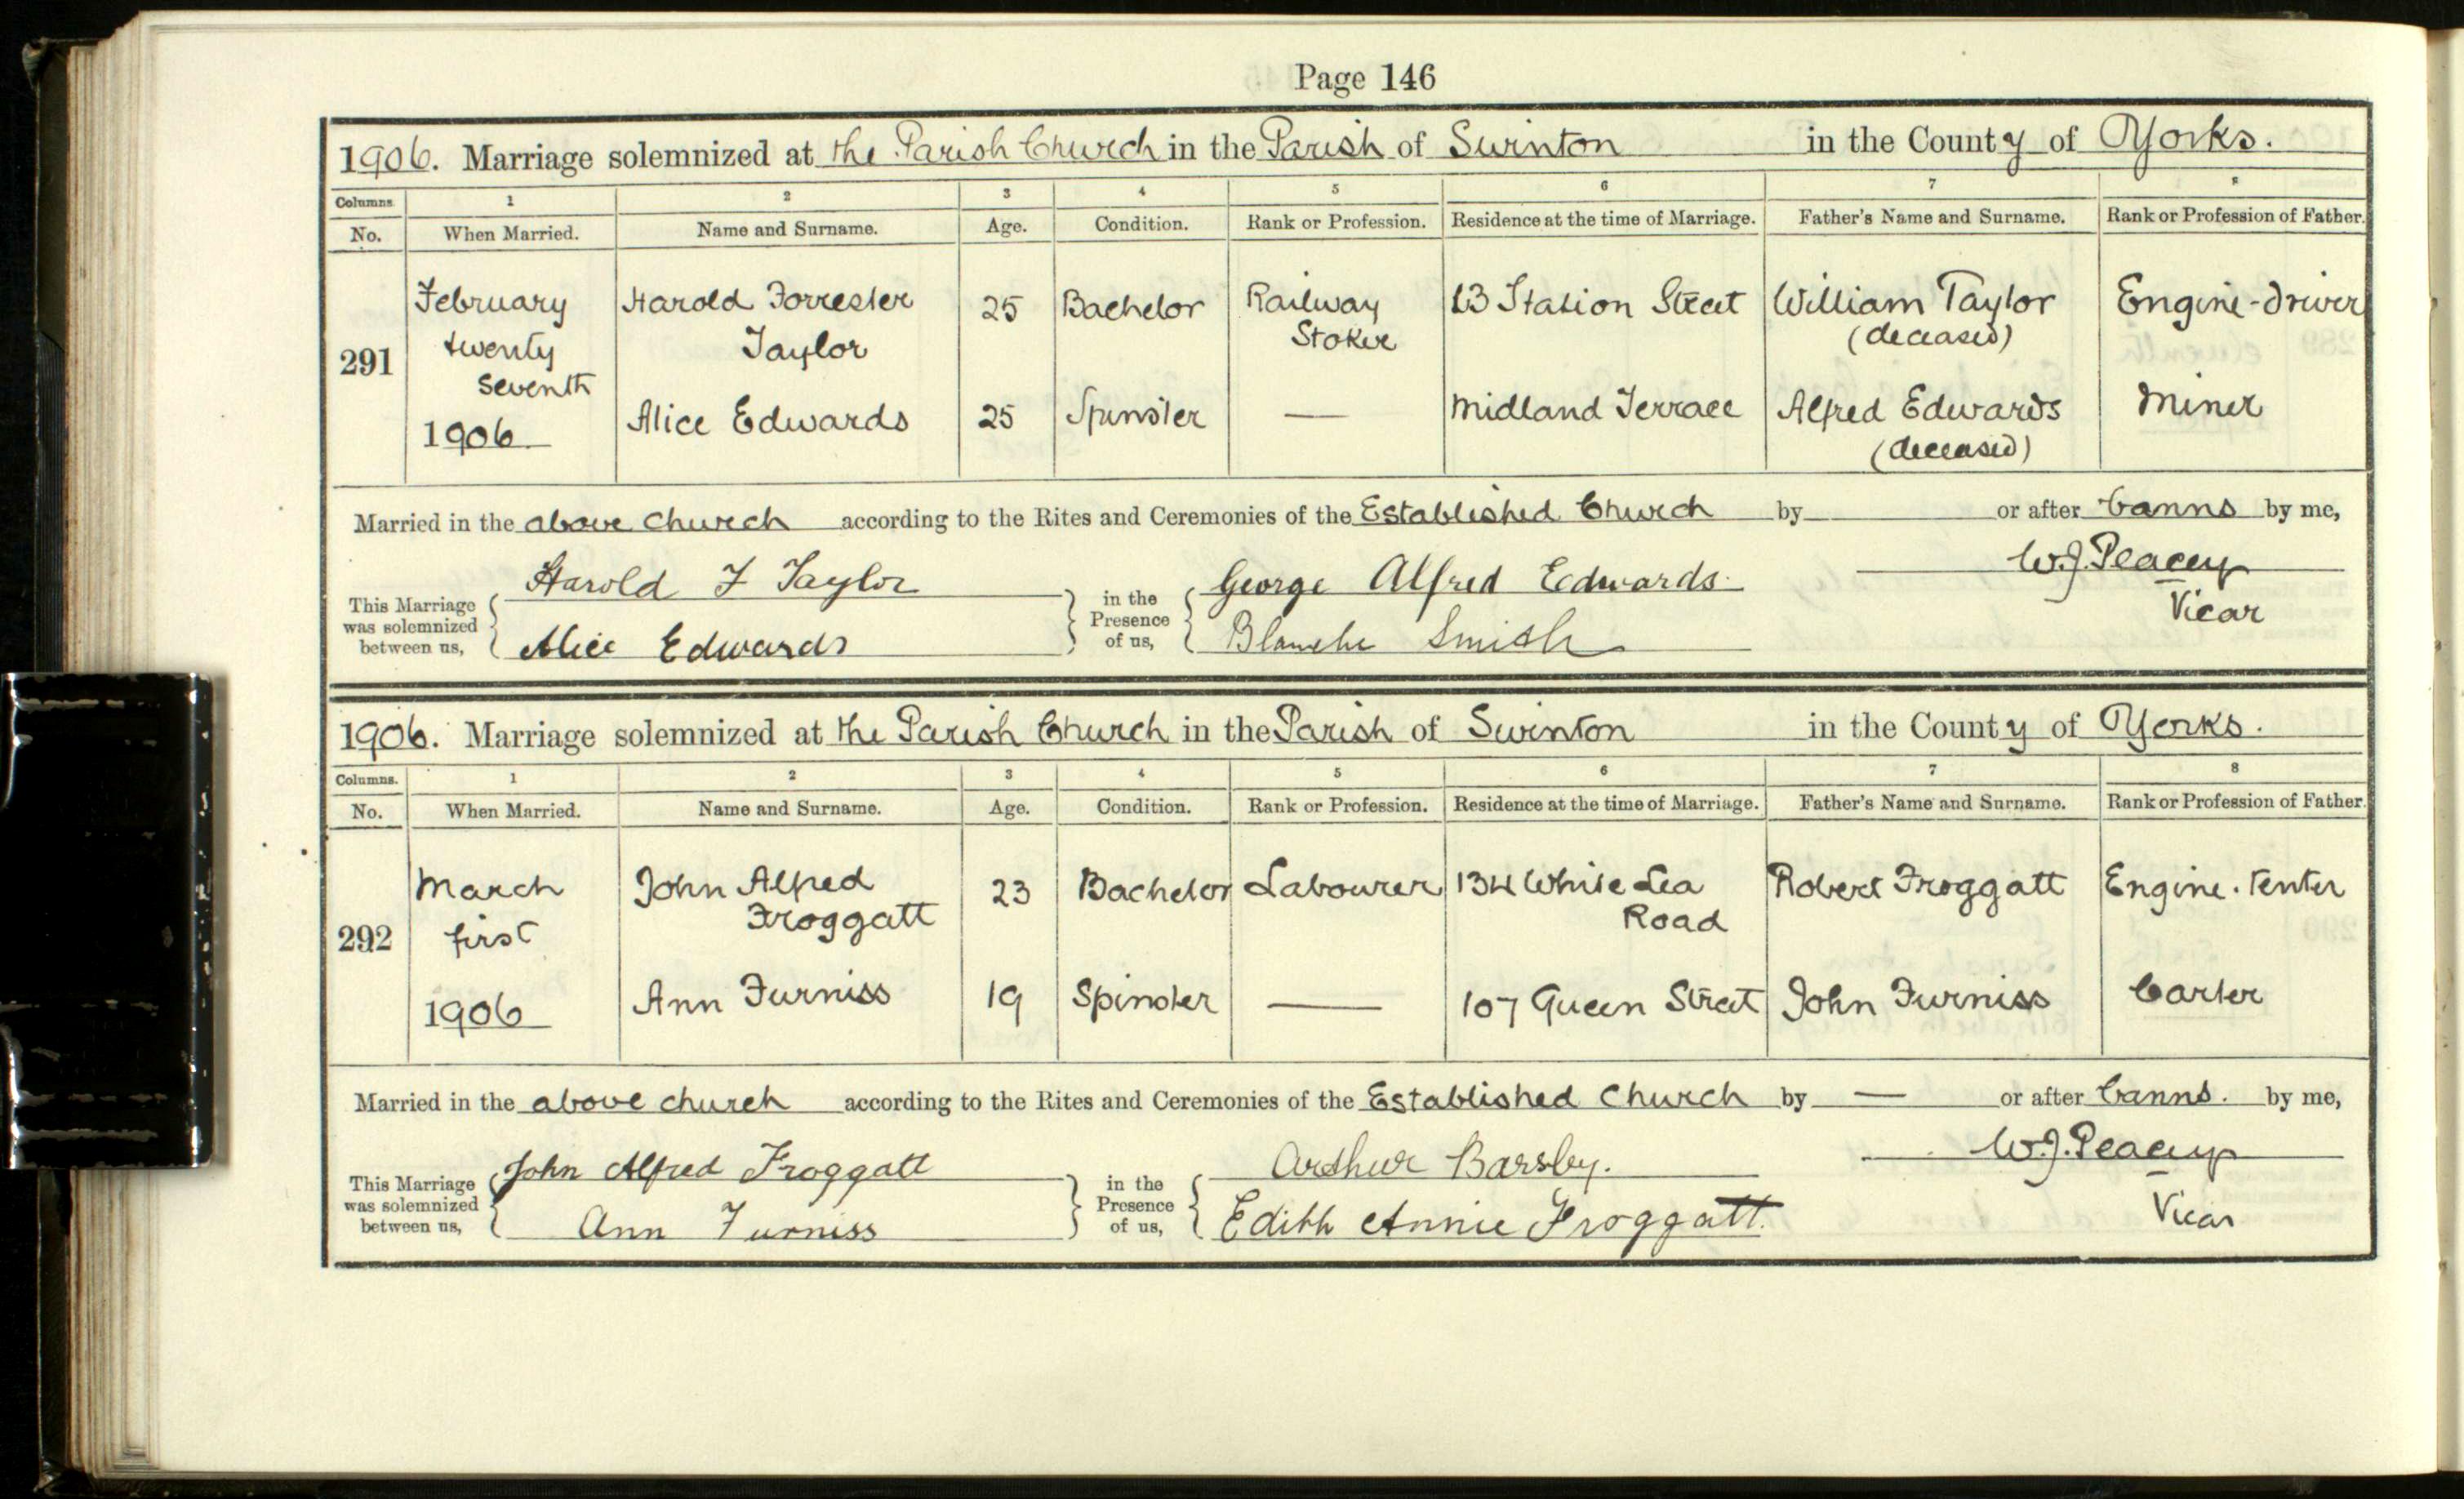 Page 146
1906. Marriage solemnized at the Parish Church in the Parish of Swinton in the County of Yorks.
Columns 1 2 3 4 5 6 7 8
No. When Married. Name and Surname. Age. Condition. Rank or Profession. Residence at the time of Marriage. Father's Name and Surname. Rank or Profession of Father.
291 February twenty seventh 1906 Harold Forrester Taylor 25 Bachelor Railway Stoker 13 Station Street William Taylor (deceased) Engine-driver
Alice Edwards 25 Spinster — Midland Terrace Alfred Edwards (deceased) Miner
Married in the above church according to the Rites and Ceremonies of the Established Church by or after banns by me,
Harold F Taylor George Alfred Edwards. W.J. Peacey
This Marriage was solemnized between us, in the Presence of us, Vicar
Alice Edwards Blanche Smith
1906. Marriage solemnized at the Parish Church in the Parish of Swinton in the County of Yorks.
Columns. 1 2 3 4 5 6 7 8
No. When Married. Name and Surname. Age. Condition. Rank or Profession. Residence at the time of Marriage. Father's Name and Surname. Rank or Profession of Father.
292 March first 1906 John Alfred Froggatt 23 Bachelor Labourer 134 White Lea Road Robert Froggatt Engine. tenter
Ann Furniss 19 Spinster — 107 Queen Street John Furniss Carter
Married in the above church according to the Rites and Ceremonies of the Established Church by — or after banns. by me,
John Alfred Froggatt Arthur Barsby. W.J. Peacey
This Marriage was solemnized between us, in the Presence of us, Vicar
Ann Furniss Edith Annie Froggatt.